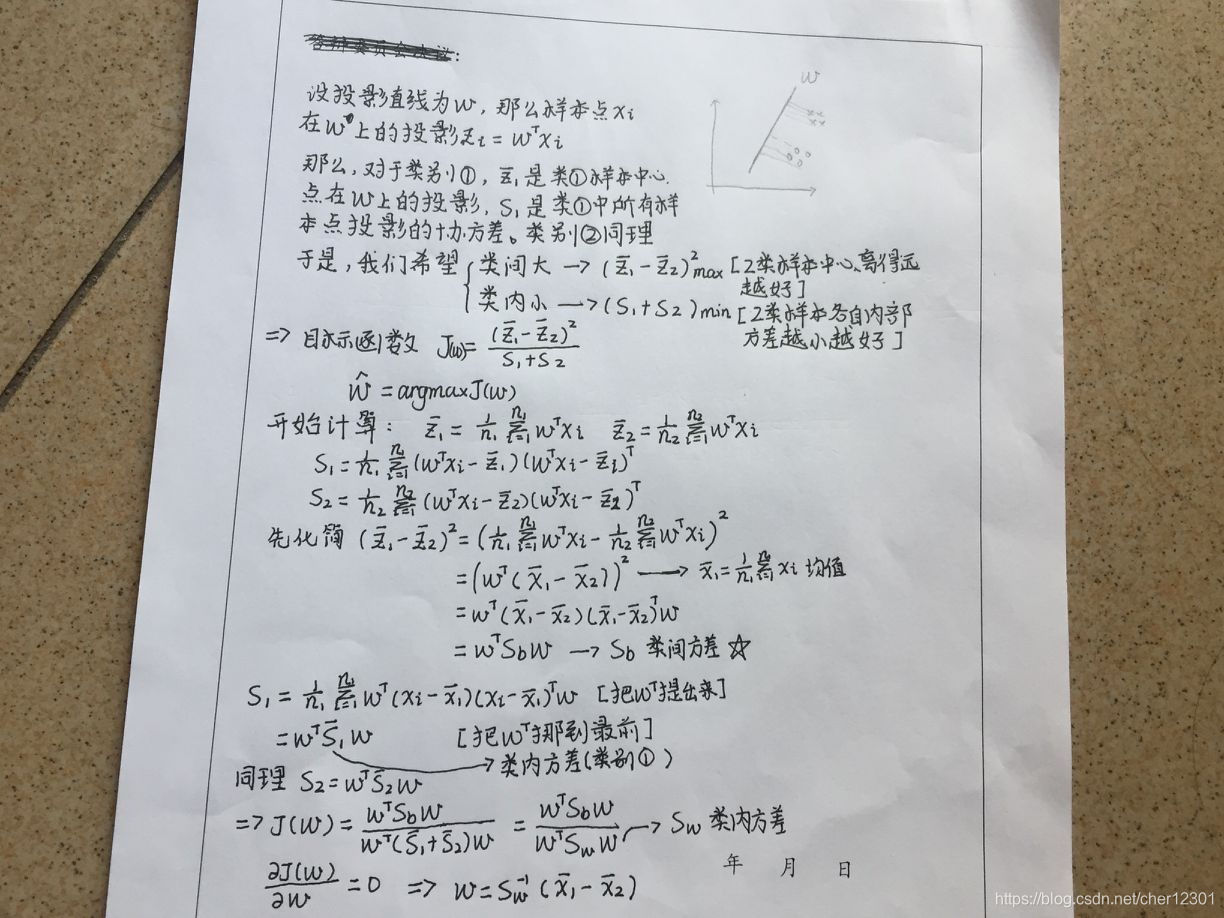 答辩委员会决议:
w
设投影直线为w,那么样本点xi
在w上的投影zi=wᵀxi
那么,对于类别①,z̄₁是类①样本中心
点在w上的投影,S₁是类①中所有样
本点投影的协方差。类别②同理
于是,我们希望{类间大 → (z̄₁-z̄₂)²max [2类样本中心离得远
越好]
类内小 → (S₁+S₂)min [2类样本各自内部
方差越小越好]
=> 目标函数 J(w)= (z̄₁-z̄₂)²/(S₁+S₂)
ŵ = argmaxJ(w)
开始计算: z̄₁ = 1/n₁ Σᵢ₌₁ⁿ¹ wᵀxi z̄₂ = 1/n₂ Σᵢ₌₁ⁿ² wᵀxi
S₁ = 1/n₁ Σᵢ₌₁ⁿ¹ (wᵀxi - z̄₁)(wᵀxi - z̄₁)ᵀ
S₂ = 1/n₂ Σᵢ₌₁ⁿ² (wᵀxi - z̄₂)(wᵀxi - z̄₂)ᵀ
先化简 (z̄₁-z̄₂)² = (1/n₁ Σᵢ₌₁ⁿ¹ wᵀxi - 1/n₂ Σᵢ₌₁ⁿ² wᵀxi)²
= (wᵀ(x̄₁-x̄₂))² → x̄₁ = 1/n₁ Σᵢ₌₁ⁿ¹ xi 均值
= wᵀ(x̄₁-x̄₂)(x̄₁-x̄₂)ᵀw
= wᵀSbw → Sb 类间方差 ☆
S₁ = 1/n₁ Σᵢ₌₁ⁿ¹ wᵀ(xi-x̄₁)(xi-x̄₁)ᵀw [把wᵀ提出来]
= wᵀS̄₁w [把wᵀ挪到最前]
→ 类内方差(类别①)
同理 S₂ = wᵀS̄₂w
=> J(w) = wᵀSbw/(wᵀ(S̄₁+S̄₂)w) = wᵀSbw/(wᵀSww) → Sw 类内方差
年 月 日
∂J(w)/∂w = 0 => w = Sw⁻¹(x̄₁-x̄₂)
https://blog.csdn.net/cher12301